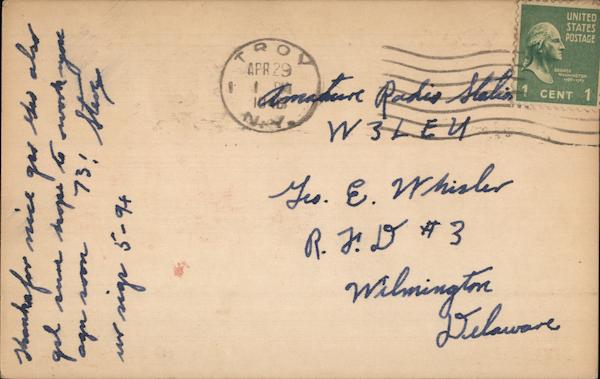 TROY
APR 29
1
N.Y.
UNITED
STATES
POSTAGE
GEORGE
WASHINGTON
1 CENT 1
Amateure Radio Station
W3LEU
Geo. E. Whisler
R. F. D # 3
Wilmington
Delaware
Thanks for nice qso also
gal sure hope to work you
agn soon 73! Steve
ur sigs 5-9+